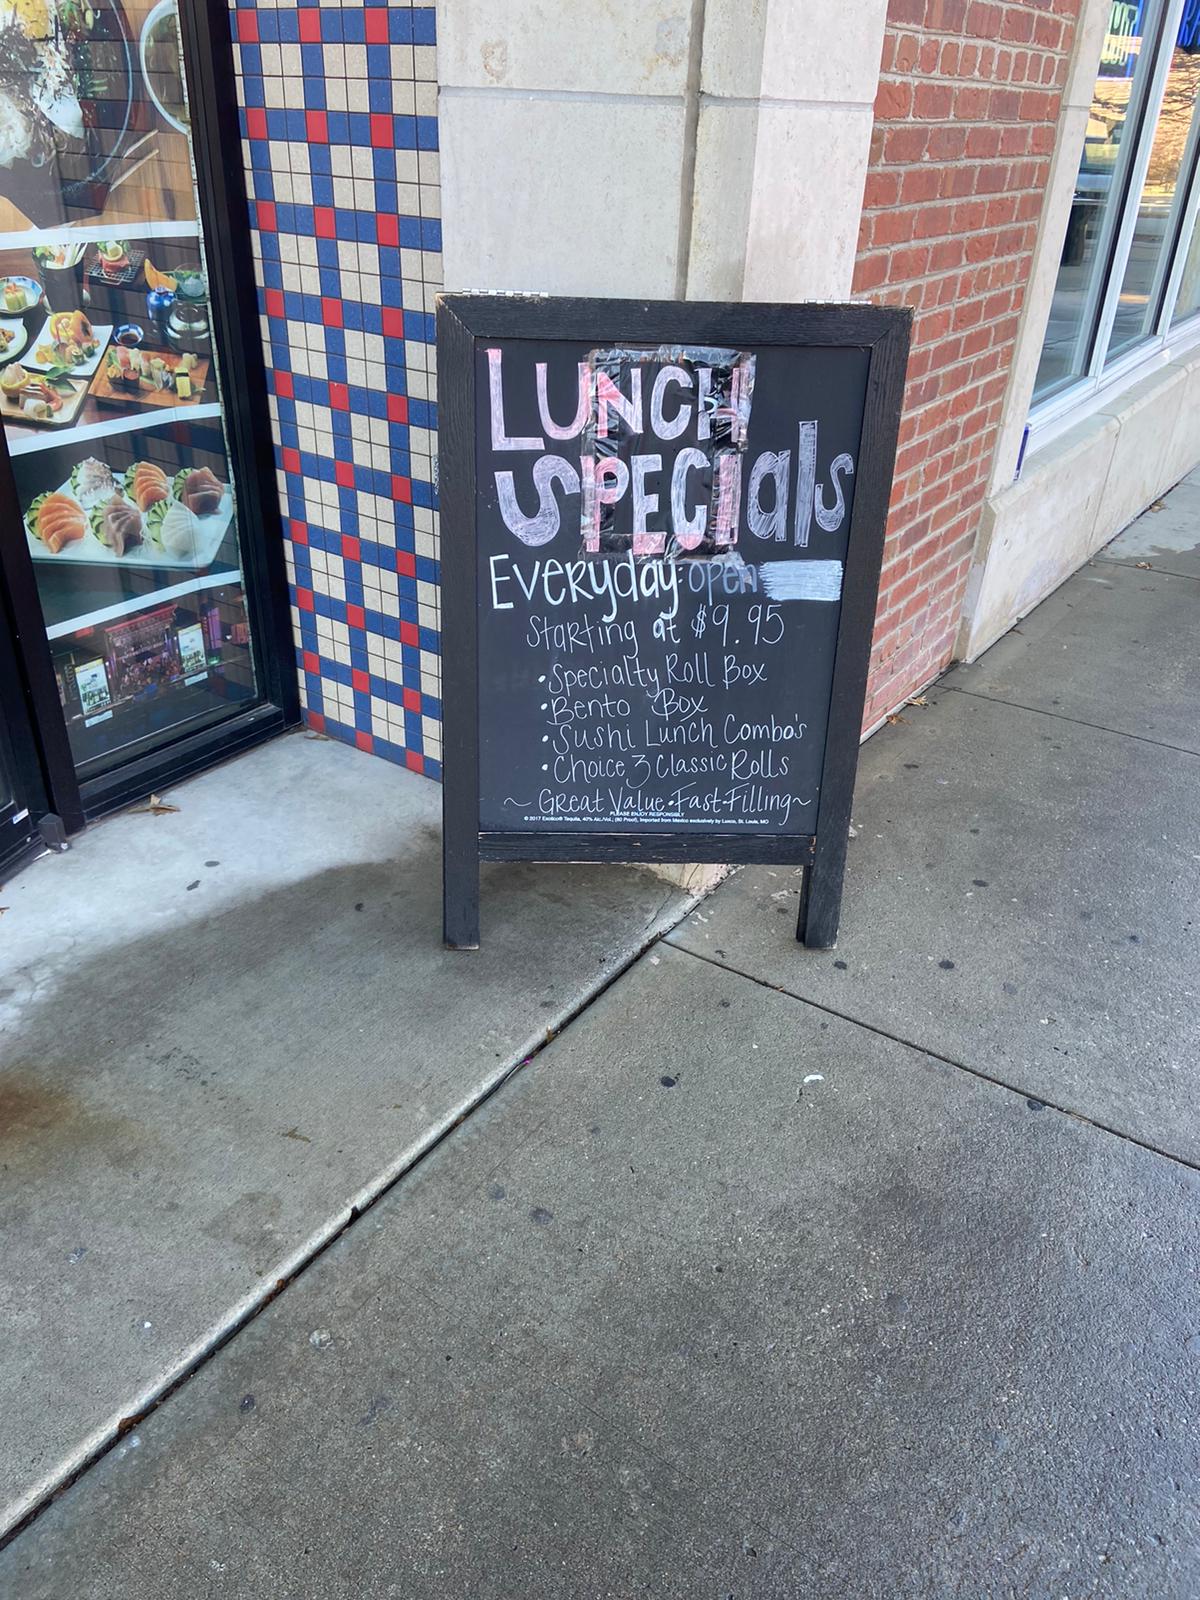 LUNCH
SPECIals
Everyday: open
Starting at $9.95
• Specialty Roll Box
• Bento Box
• Sushi Lunch Combo's
• Choice 3 Classic Rolls
~ Great Value • Fast • Filling ~
PLEASE ENJOY RESPONSIBLY
© 2017 Exotico® Tequila, 40% Alc./Vol., (80 Proof), Imported from Mexico exclusively by Luxco, St. Louis, MO